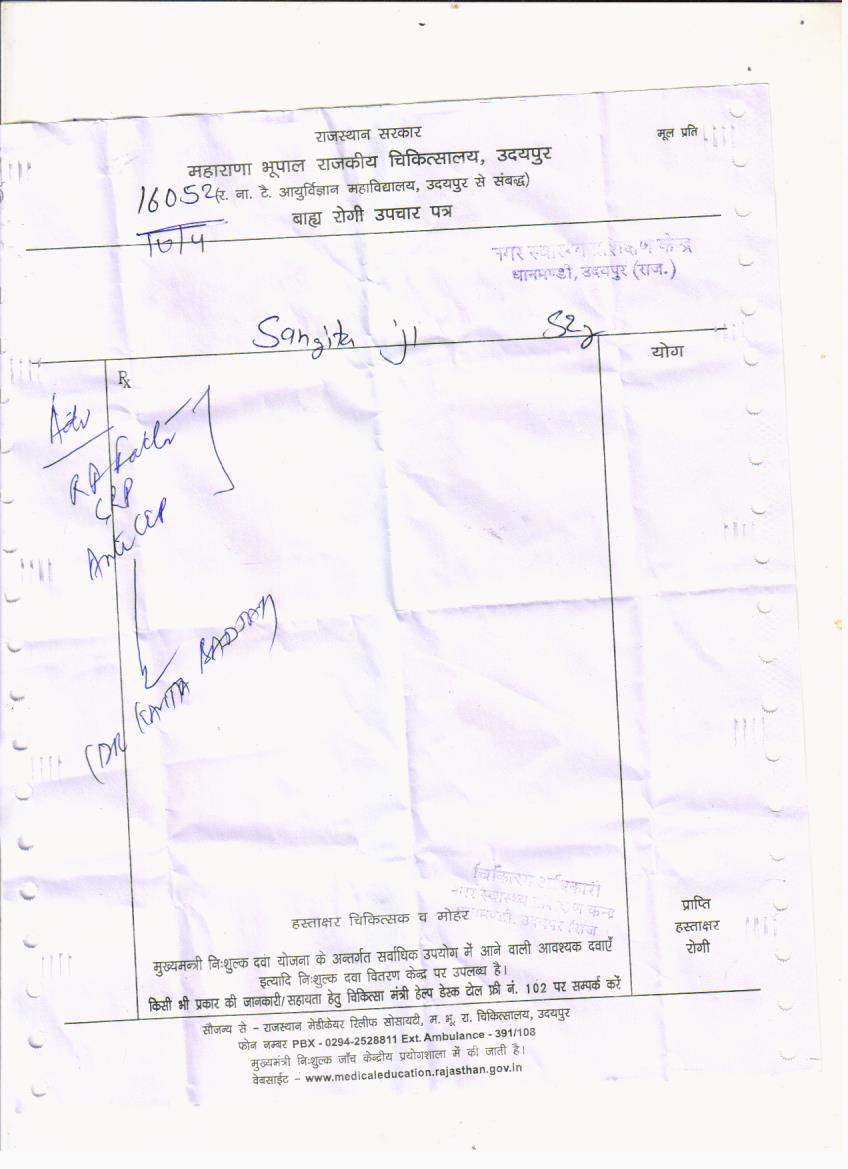 राजस्थान सरकार
मूल प्रति
महाराणा भूपाल राजकीय चिकित्सालय, उदयपुर
16052 (र. ना. टै. आयुर्विज्ञान महाविद्यालय, उदयपुर से संबद्ध)
बाह्य रोगी उपचार पत्र
नगर स्वास्थ्य प्रशिक्षण केन्द्र
धानमण्डी, उदयपुर (राज.)
Sangita ji
योग
Rx
Adv
RA Factor
CRP
Anti CCP
(DR
चिकित्सा अधिकारी
नगर स्वास्थ्य प्रशिक्षण केन्द्र
धानमण्डी, उदयपुर (राज
हस्ताक्षर चिकित्सक व मोहर
प्राप्ति
हस्ताक्षर
रोगी
मुख्यमन्त्री निःशुल्क दवा योजना के अन्तर्गत सर्वाधिक उपयोग में आने वाली आवश्यक दवाएँ
इत्यादि निःशुल्क दवा वितरण केन्द्र पर उपलब्ध है।
किसी भी प्रकार की जानकारी/सहायता हेतु चिकित्सा मंत्री हेल्प डेस्क टोल फ्री नं. 102 पर सम्पर्क करें
सौजन्य से – राजस्थान मेडीकेयर रिलीफ सोसायटी, म. भू. रा. चिकित्सालय, उदयपुर
फोन नम्बर PBX - 0294-2528811 Ext. Ambulance - 391/108
मुख्यमंत्री निःशुल्क जाँच केन्द्रीय प्रयोगशाला में की जाती है।
वेबसाईट – www.medicaleducation.rajasthan.gov.in